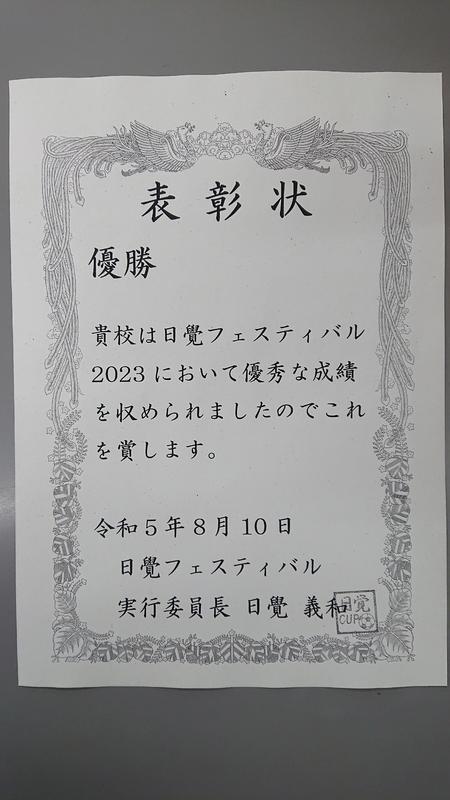 表彰状
優勝
貴校は日覺フェスティバル
2023 において優秀な成績
を収められましたのでこれ
を賞します。
令和5年8月10日
日覺フェスティバル
実行委員長 日覺 義和
日覚
CUP